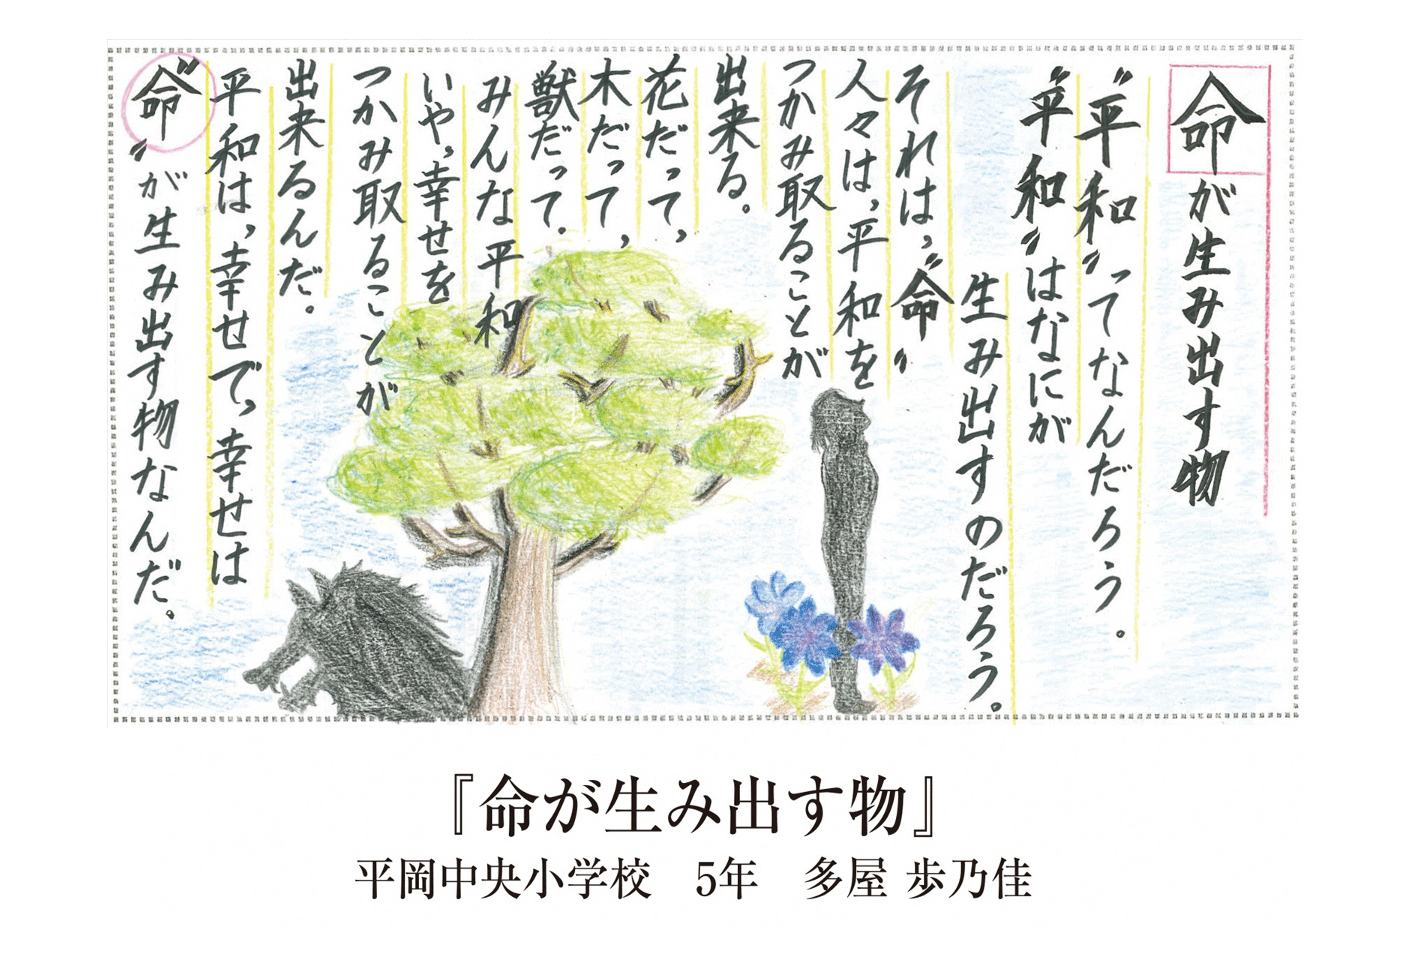 命が生み出す物
〝平和〟ってなんだろう。
〝平和〟はなにが
生み出すのだろう。
それは、〝命〟
人々は、平和を
つかみ取ることが
出来る。
花だって、
木だって、
獣だって。
みんな平和
いや、幸せを
つかみ取ることが
出来るんだ。
平和は、幸せで、幸せは
〝命〟が生み出す物なんだ。
『命が生み出す物』
平岡中央小学校　5年　多屋 歩乃佳